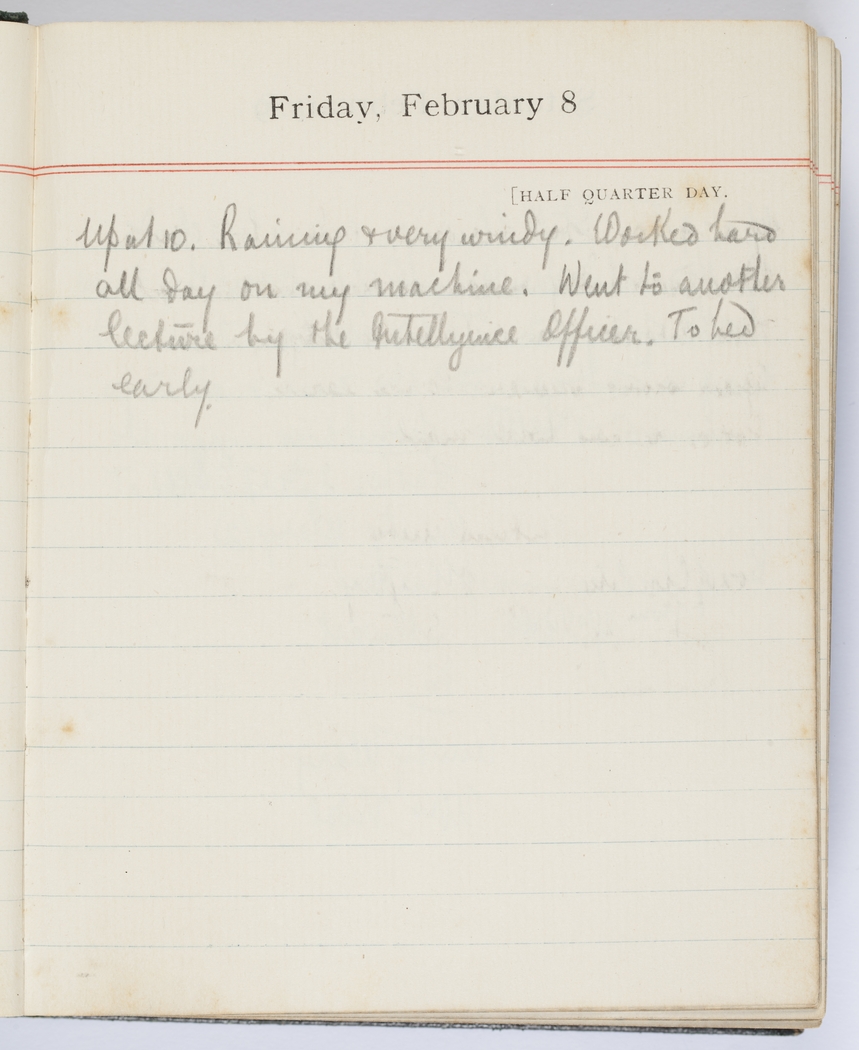 Friday, February 8
[HALF QUARTER DAY.
Up at 10. Raining & very windy. Worked hard
all day on my machine. Went to another
lecture by the Intelligence Officer. To bed
early.